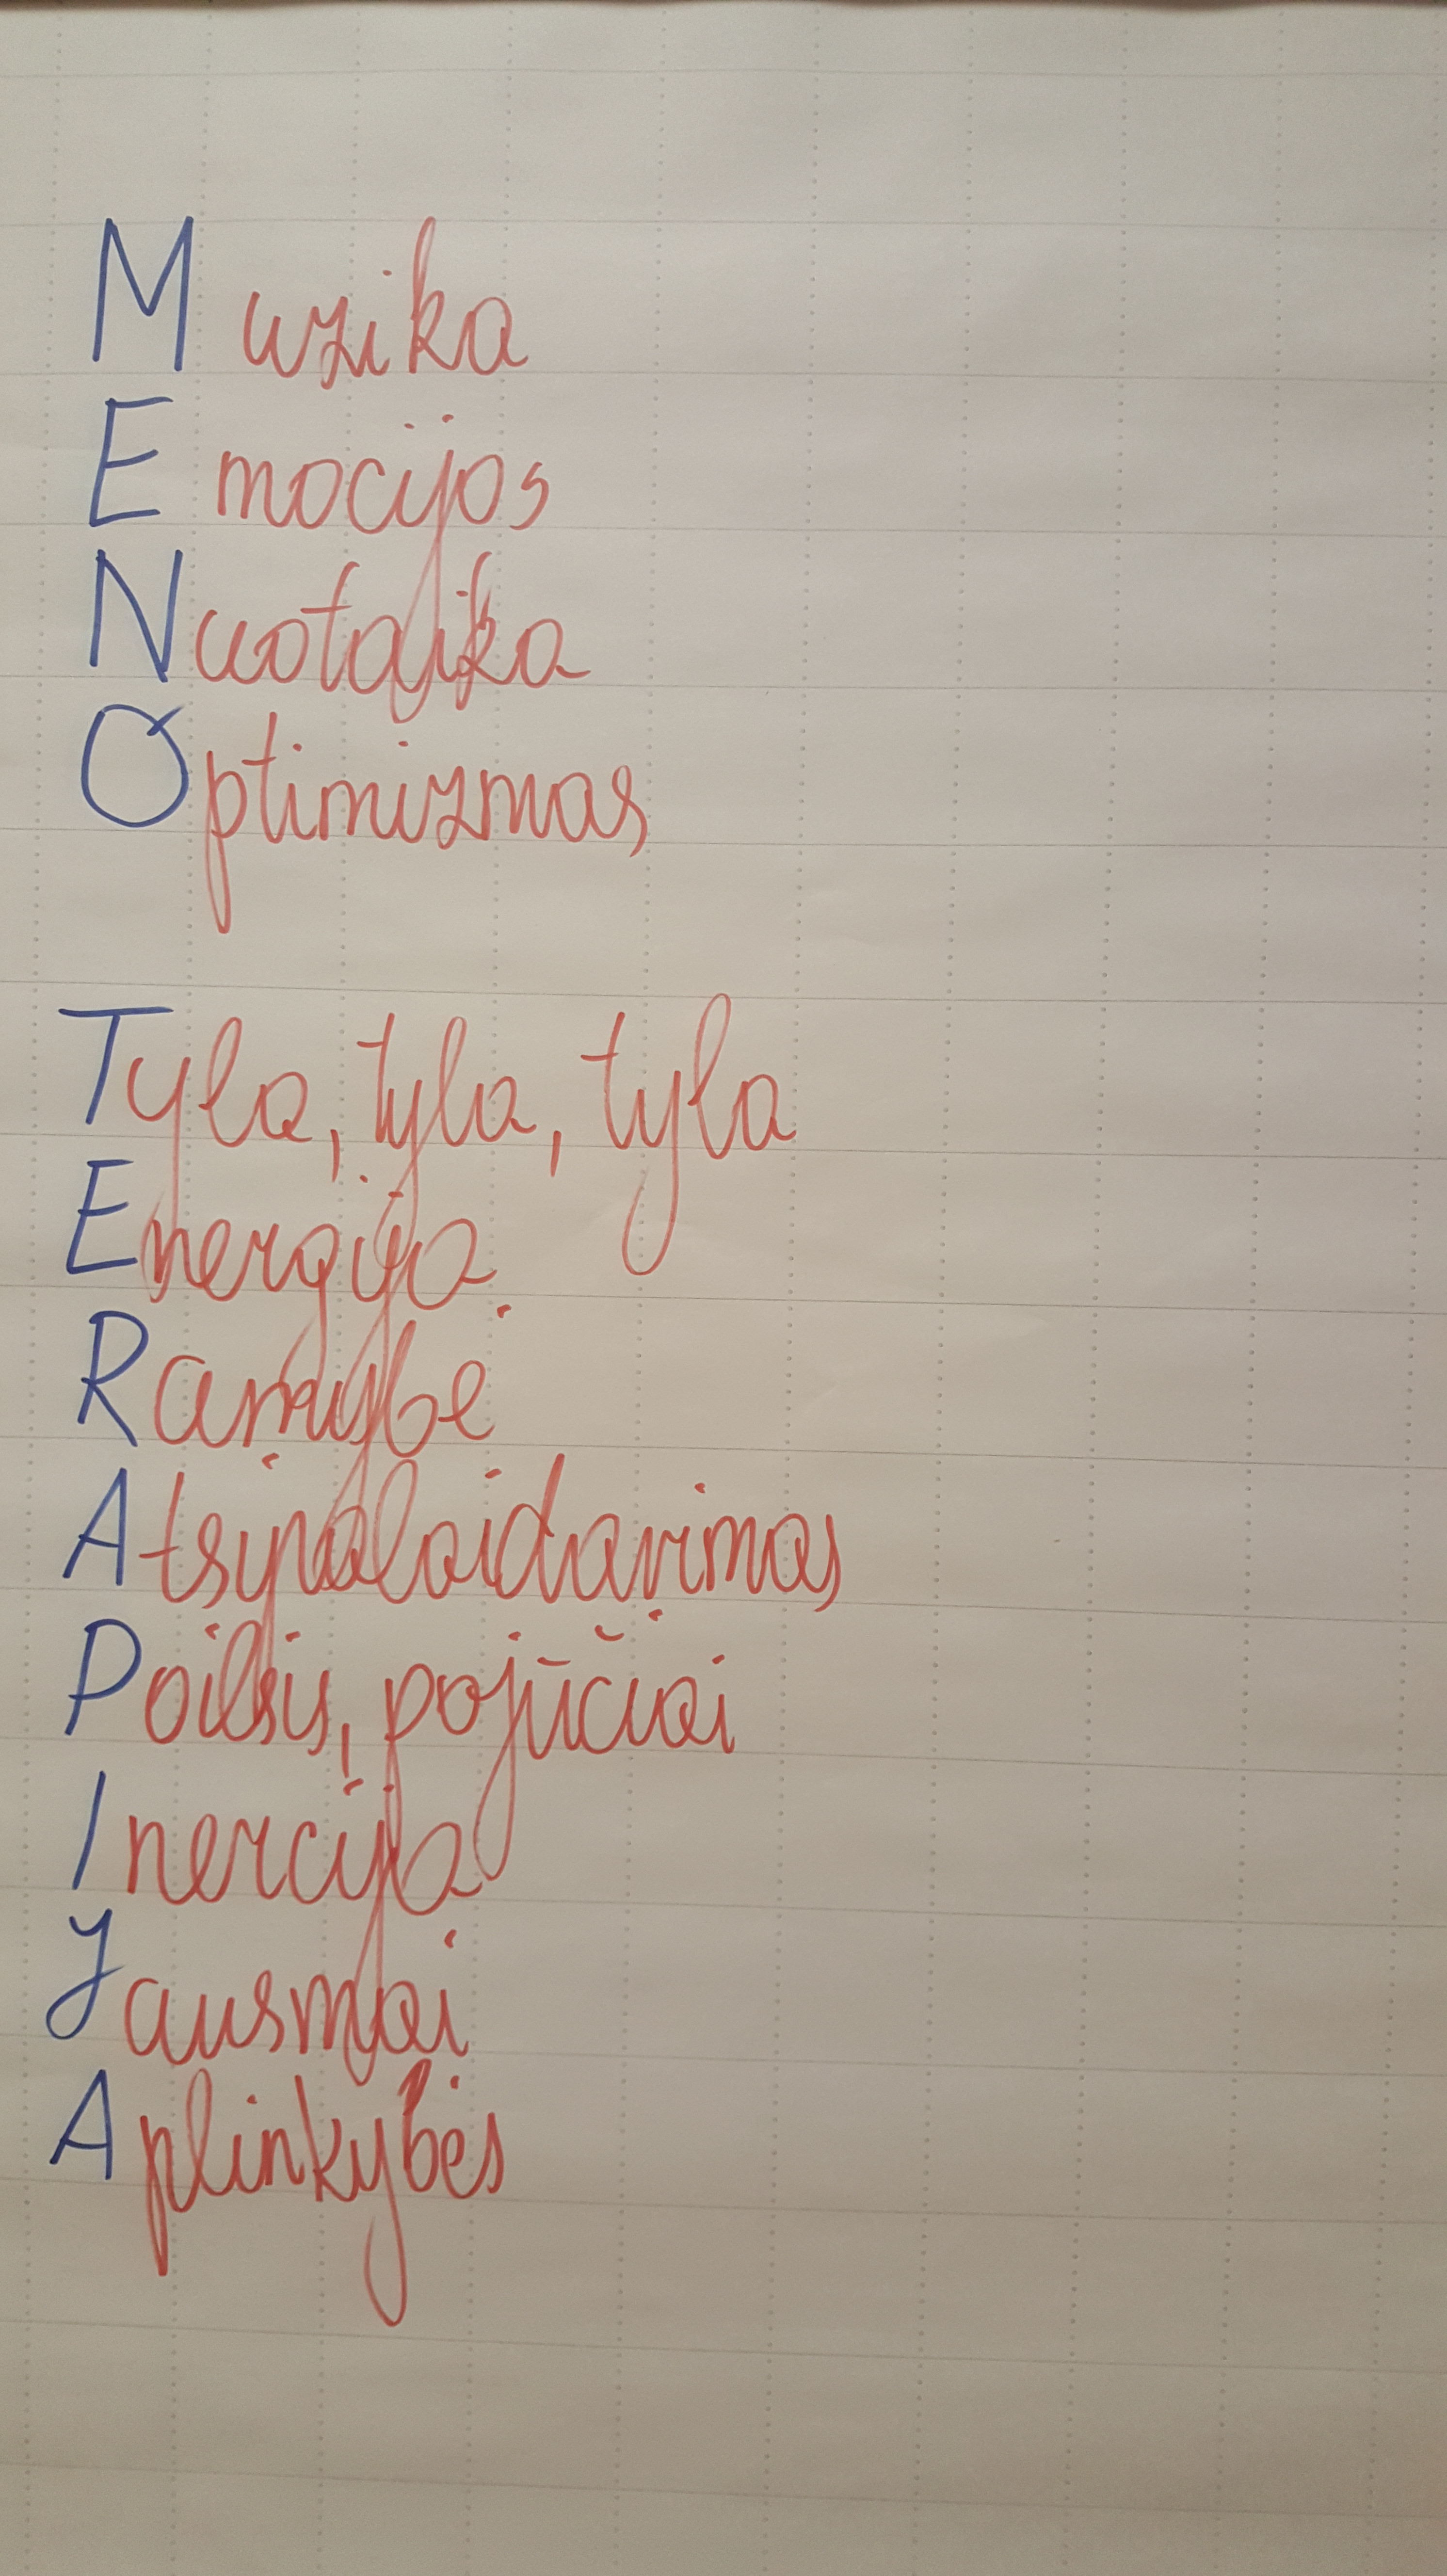 Muzika
Emocijos
Nuotaika
Optimizmas
Tyla, tyla, tyla
Energija
Ramybė
Atsipalaidavimas
Poilsis, pojūčiai
Inercija
Jausmai
Aplinkybės